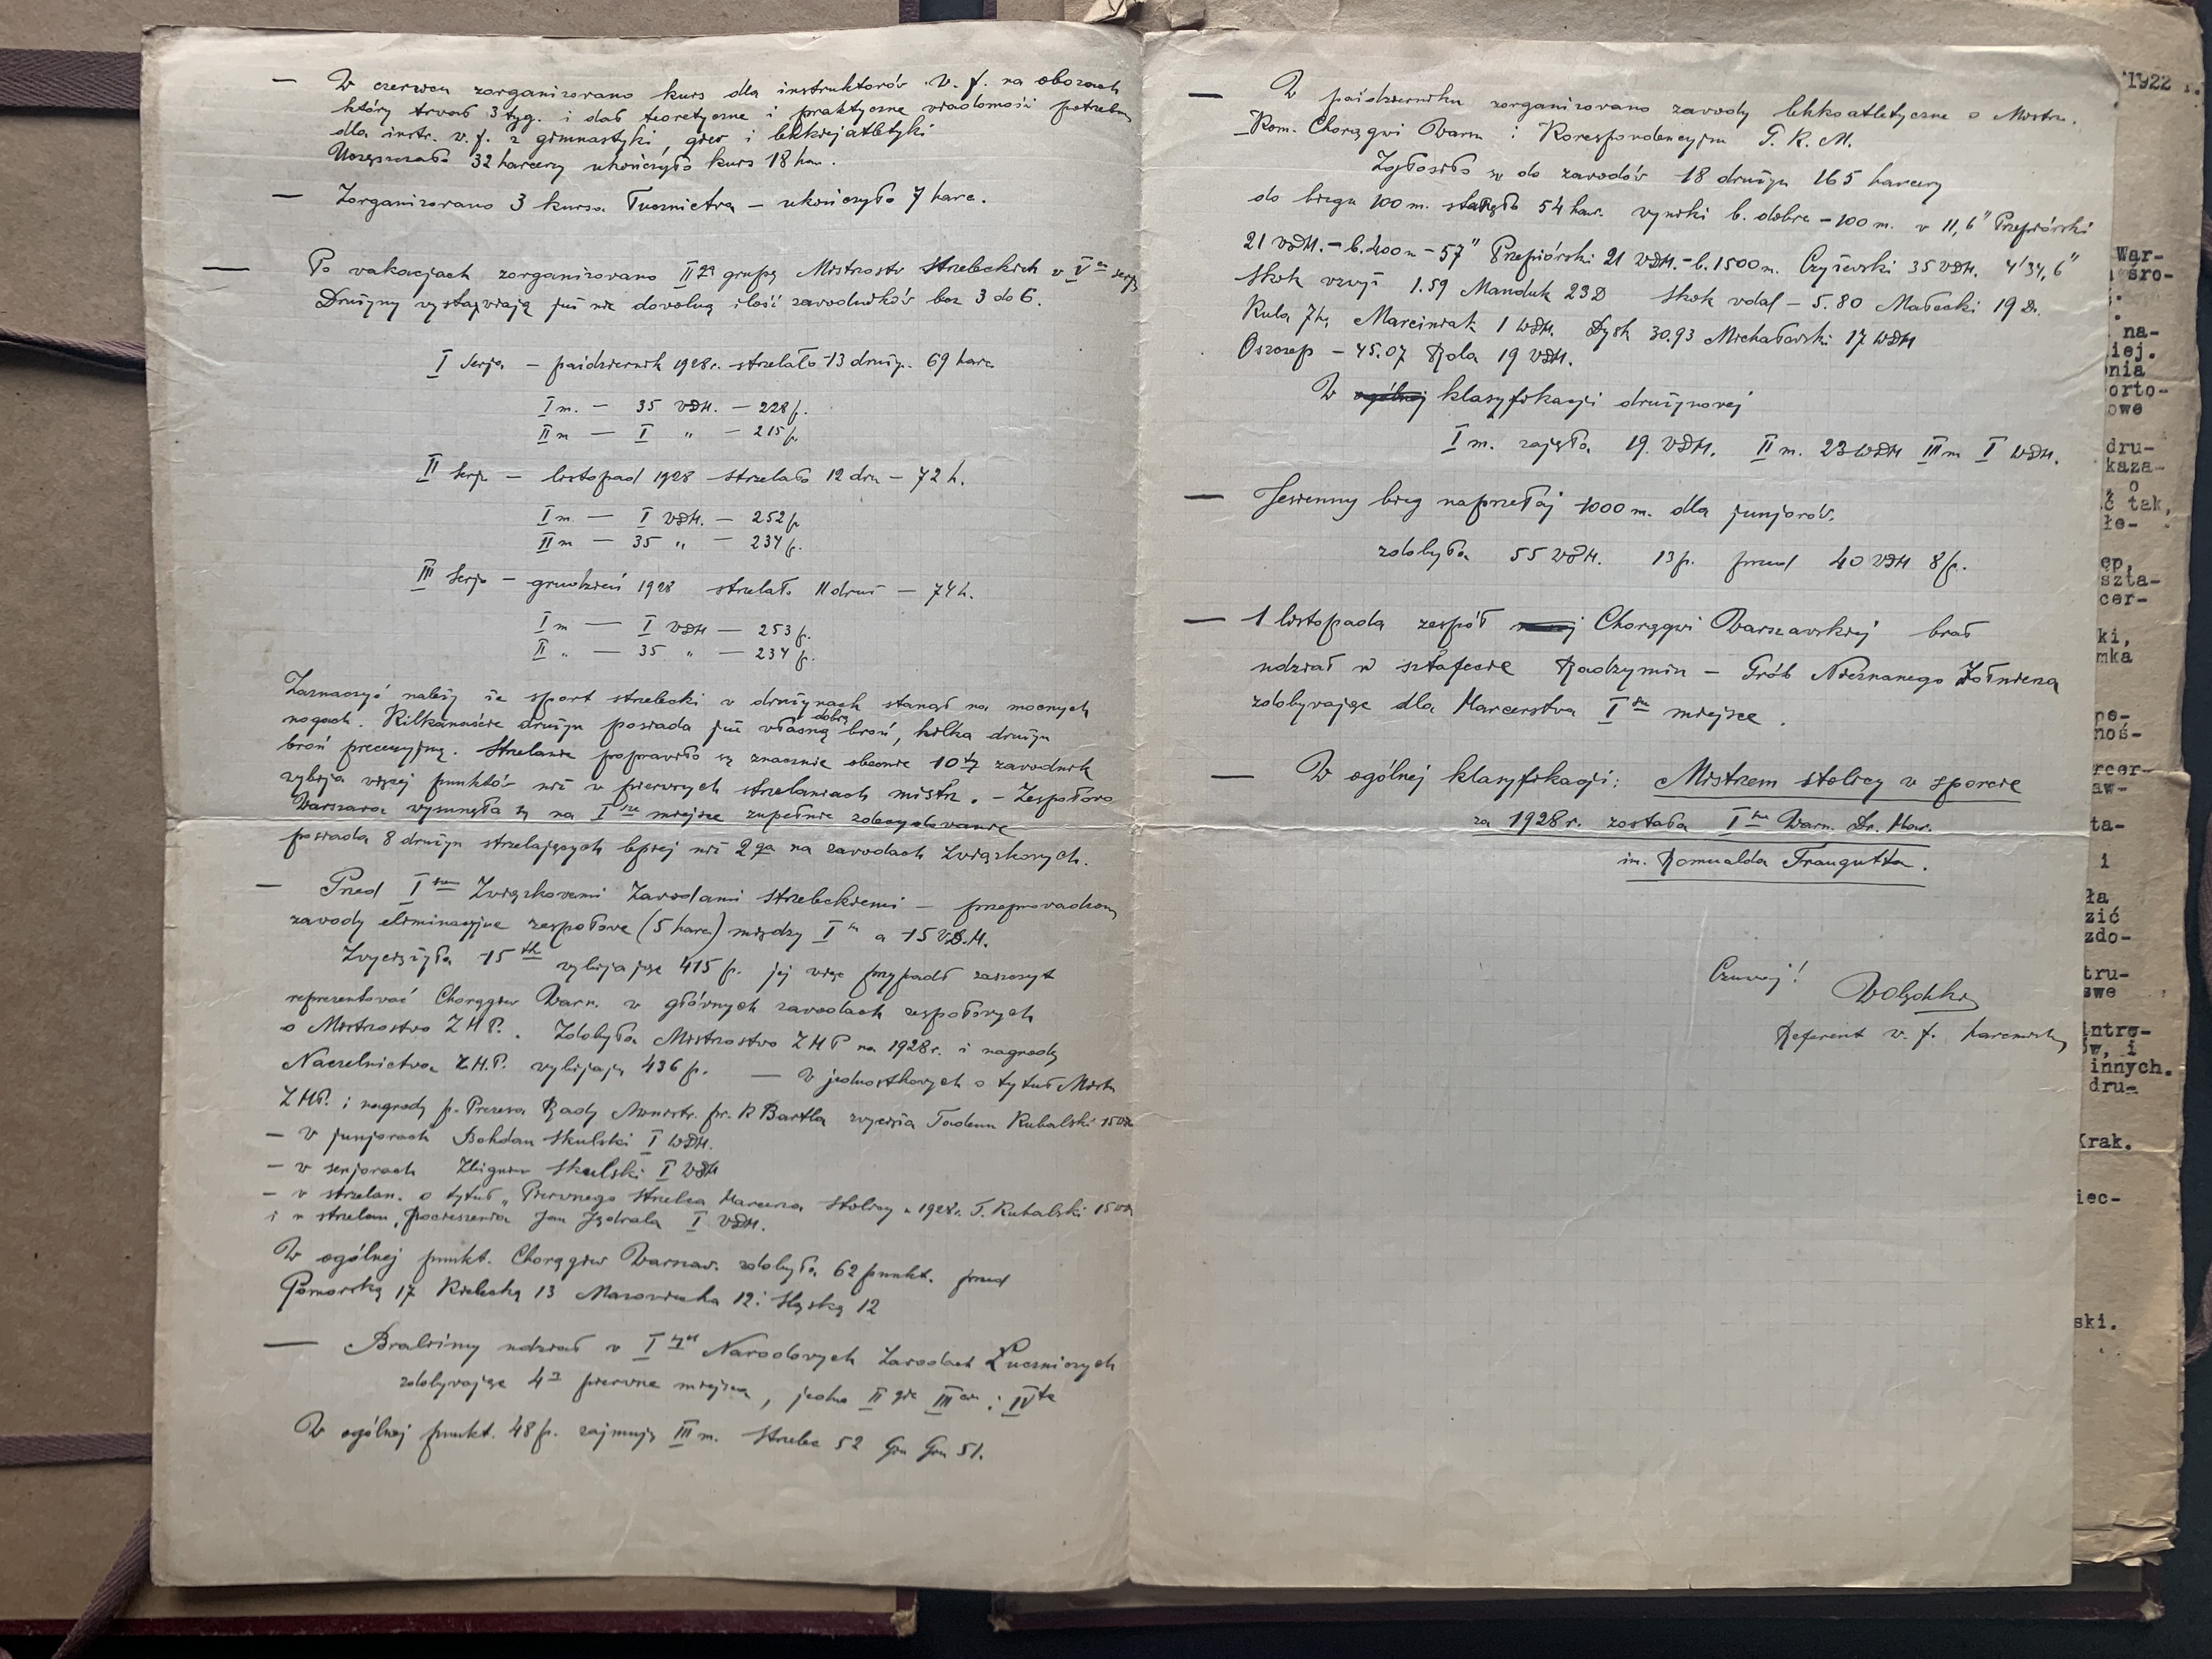 — W czerwcu zorganizowano kurs dla instruktorów w. f. na obozach
który trwał 3 tyg. i dał teoretyczne i praktyczne wiadomości potrzebn
dla instr. w. f. z gimnastyki, gier i lekkiejatletyki
Uczęszczało 32 harcerzy ukończyło kurs 18 har.
— Zorganizowano 3 kursa Łucznictwa — ukończyło 7 harc.
— Po wakacjach zorganizowano II gą grupę Mistrzostw Strzeleckich w V
Drużyny wystawiają już nie dowolną ilość zawodników lecz 3 do 6.
I Serja — październik 1928r. strzelało 13 druży. 69 harc
I m. — 35 WDH. — 228 p.
II m — I „ — 215 p.
II Serja — listopad 1928 strzelało 12 dru — 72 h.
I m — I WDH. — 252 p
II m — 35 „ — 234 p.
III Serja — grudzień 1928 strzelało 11 druż — 74 h.
I m — I WDH — 253 p.
II „ — 35 „ — 234 p.
Zaznaczyć należy że sport strzelecki w drużynach stanął na mocnych
nogach. Kilkanaście drużyn posiada już własną dobrą broń, kilka drużyn
broń precezyjną. Strzelanie poprawiło się znacznie obecnie 10 ty zawodnik
wybija więcej punktów niż w pierwszych strzelaniach mistrz. — Zespołowo
Warszawa wysunęła się na I sze miejsce zupełnie zdecydowanie
posiada 8 drużyn strzelających lepiej niż 2 ga na zawodach Związkowych.
— Przed I Związkowemi Zawodami strzeleckiemi — przeprowadzon
zawody eliminacyjne zespołowe (5 harc) między I a 15 W.D.H.
Zwyciężyła 15 tka wybijając 415 p. jej więc przypadł zaszczyt
reprezentować Chorągiew Warsz. w głównych zawodach zespołowych
o Mistrzostwo Z.H.P. Zdobyła Mistrzostwo ZHP na 1928r. i nagrodę
Naczelnictwa Z.H.P. wybijając 436 p. — W jednostkowych o tytuł Mistrz
ZHP. i nagrodę p. Prezesa Rady Ministr. pr. K Bartla zwycięża Tadeusz Kubalski 15 WDH
— w junjorach Bohdan Skulski I WDH.
— w senjorach Zbigniew Skulski I WDH
— w strzelan. o tytuł „ Pierwszego Strzelca Harcerza Stolicy 1928r. T. Kubalski 15 WDH
i w strzelan, pocieszenia Jan Jędrala I WDH.
W ogólnej punkt. Chorągiew Warszaw. zdobyła 62 punkt. przed
Pomorską 17 Kielecką 13 Mazowiecka 12 i Śląską 12
— Braliśmy udział w I szych Narodowych Zawodach Łuczniczych
zdobywając 4 pierwsze miejsca, jedno II gie III cie i IV te
W ogólnej punkt. 48 p. zajmując III m. Strzelec 52 51.
— W październiku zorganizowano zawody lekkoatletyczne o Mistrz.
Kom. Chorągwi Warsz i Korespondencyjn P. K. M.
Zgłosiło się do zawodów 18 drużyn 165 harcerzy
do biegu 100 m. stanęło 54 har. wyniki b. dobre — 100 m. w 11,6" Przepiórski
21 WDH. — b. 400 m — 57" Przepiórski 21 WDH. — b. 1500 m. Czyżewski 35 WDH. 4'34,6"
skok wzwyż 1.59 Manduk 23 D skok wdal — 5.80 Małecki 19 D.
Kula 7 kg Marciniak 1 WDH. Dysk 30.93 Michałowski 17 WDH
Oszczep — 45.07 Rola 19 WDH.
W ogólnej klasyfikacji drużynowej
I m. zajęła 19. WDH. II m. 23 WDH III m I WDH.
— Jesienny bieg naprzełaj 1000 m. dla junjorów.
zdobyła 55 WDH. 13 p. przed 40 WDH 8 p.
— 1 listopada zespół Chorągwi Warszawskiej brał
udział w sztafecie Radzymin — Grób Nieznanego Żołnierza
zdobywając dla Harcerstwa I sze miejsce.
— W ogólnej klasyfikacji: Mistrzem stolicy w sporcie
za 1928r. została I sza Warsz. Dr. Har.
im. Romualda Traugutta.
Czuwaj!
Referent w. f. harcerskiej
1922 r.
War-
śro-
na-
iej.
nia
orto-
owe
dru-
kaza-
o
ć tak,
łe-
ęp,
szta-
cer-
ki,
mka
po-
noś-
rcer-
aw-
ta-
i
ła
zić
zdo-
tru-
swe
intre-
ów, i
innych.
dru-
Krak.
iec-
ski.